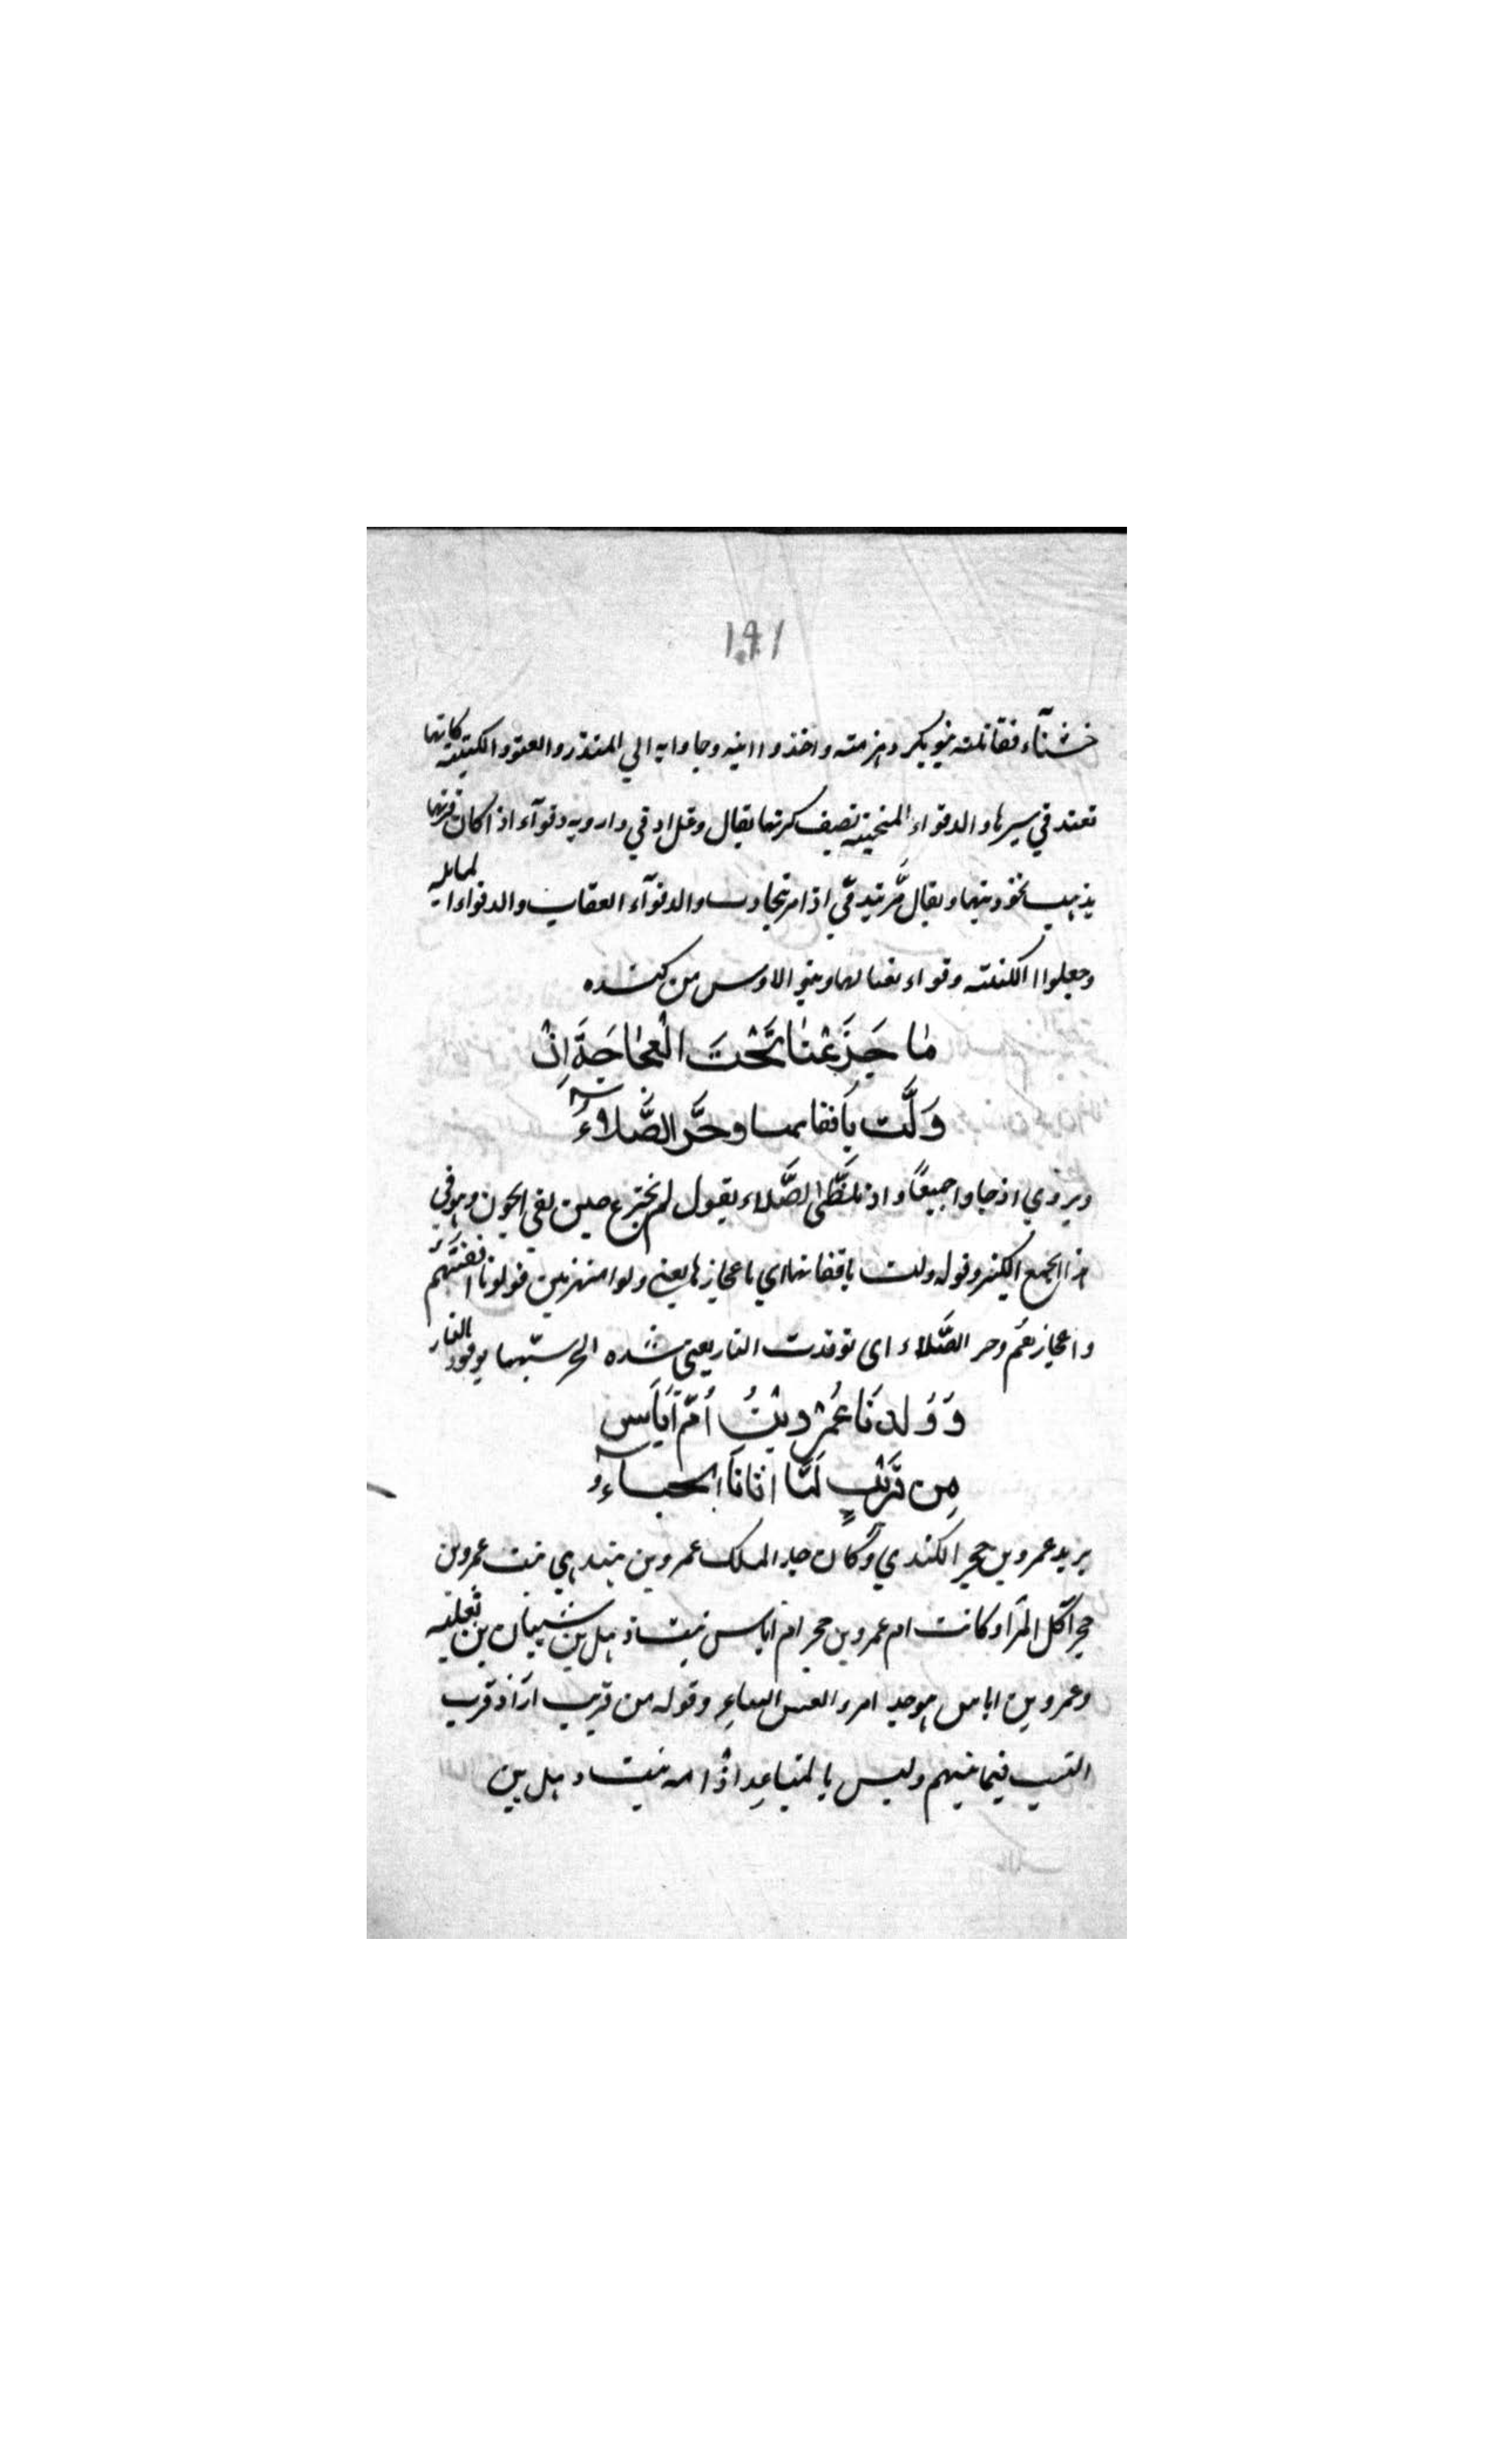 ١٩١
خشنآء فقاتلته بنو بكر وهزمته واخذوا ابنه وجاوا به الي المنذر والعنود الكتيبة كانها
تعند في سيرها والدفواء المنحنية تصيف كرتها يقال وعل ادفي واروية دفوآء اذا كان قرنها
يذهب نحو ذنبها ويقال مَّر يتدفّي اذا مر يتجادب والدفوآء العقاب والدفواء المايله
وجعلوا الكتيبة دفواء بغنا لها وبنو الاوس من كنده
مَا جَزَعْنَا تَحْتَ الْعَجَاجَةِ اِذْ
وَلَّت بِاَقفائها وحَرَّ الصَّلاءَ
ويروي اذ جاوا جميعًا واذ تلظَّى الصَّلاء يقول لم نجزع حين لقي الجون وهو في
هذا الجمع الكثير وقوله ولت باقفائها اي باعجازها يعني ولوا منهزمين فولونا اقفيتهم
واعجازهُم وحر الصَّلاء اى توقدت النار يعني شده الحر شبهها بوقود النار
وَوَلدنَا عَمْرو بْنُ اُمّ اَيَاس
مِن قَرِيْبٍ لَمَّا اتَانَا الحباءُ
يريد عمرو بن حجر الكندي وكان جد الملك عمرو بن هند هي بنت عمرو بن
حجر آكل المرا وكانت ام عمرو بن حجر ام اياس بنت ذهل بن شيبان بن ثعلبه
وعمرو بن اياس هو جد امرو القيس الشاعر وقوله من قريب اراد قرب
النسب فيما بينهم وليس بالمتباعِد اذ امه بنت ذهل بن